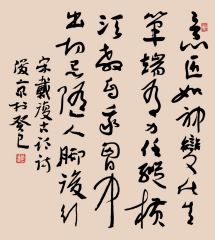 意匠如神變化生
筆端有力任縱橫
須教自我胸中
出切忌隨人脚後行
宋戴復古論詩
京於癸巳